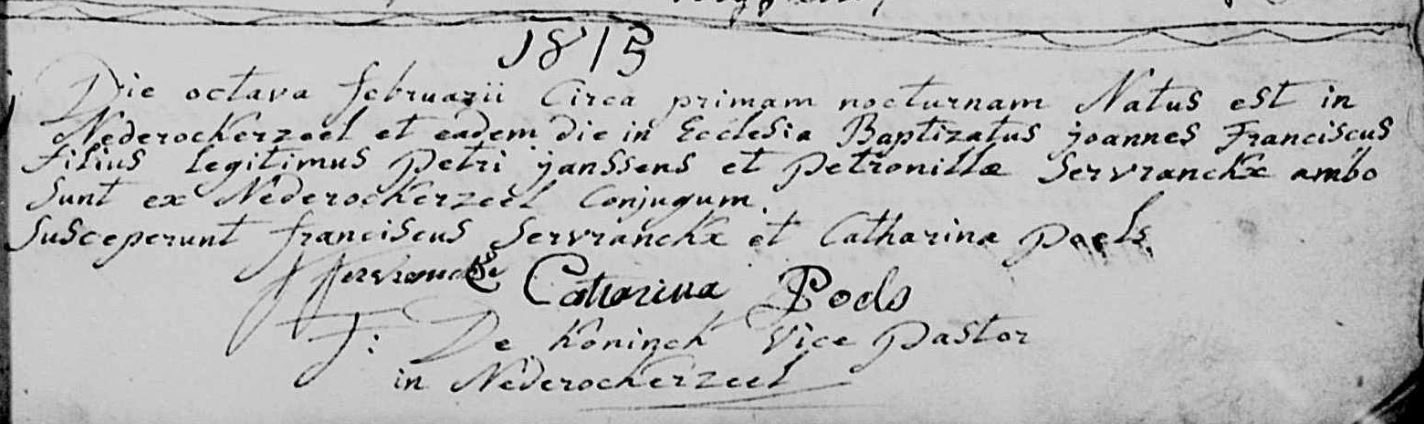 1815
Die octava februarii Circa primam nocturnam Natus est in
Nederockerzeel et eadem die in Ecclesia Baptizatus joannes Franciscus
filius legitimus petri janssens et petronillæ Servranckx ambo
Sunt ex Nederockerzeel Conjugum.
Susceperunt franciscus Servranckx et Catharina poels.
Servranckx Catharina Poels
F: De Koninck Vice pastor
in Nederockerzeel